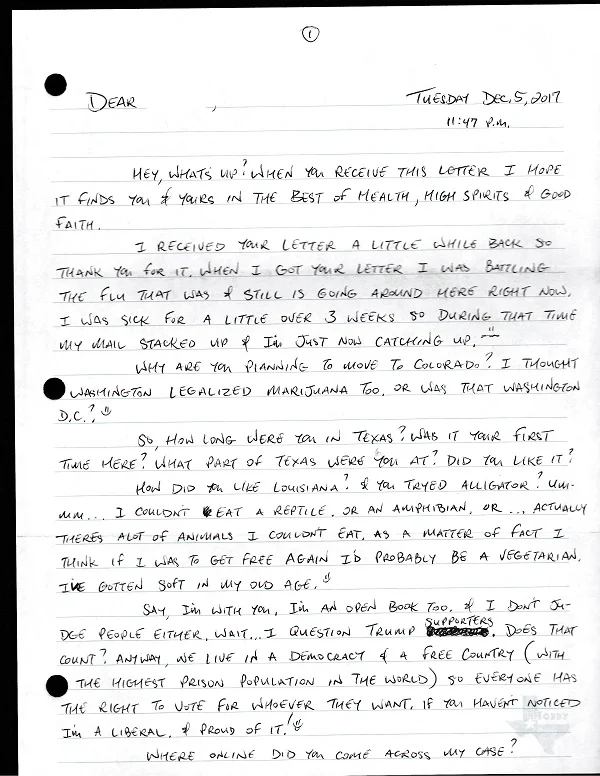 1
DEAR , TUESDAY DEC. 5, 2017
11:47 P.M.
HEY, WHATS UP? WHEN YOU RECEIVE THIS LETTER I HOPE
IT FINDS YOU & YOURS IN THE BEST OF HEALTH, HIGH SPIRITS & GOOD
FAITH.
I RECEIVED YOUR LETTER A LITTLE WHILE BACK SO
THANK YOU FOR IT. WHEN I GOT YOUR LETTER I WAS BATTLING
THE FLU THAT WAS & STILL IS GOING AROUND HERE RIGHT NOW.
I WAS SICK FOR A LITTLE OVER 3 WEEKS SO DURING THAT TIME
MY MAIL STACKED UP & I'M JUST NOW CATCHING UP.
WHY ARE YOU PLANNING TO MOVE TO COLORADO? I THOUGHT
WASHINGTON LEGALIZED MARIJUANA TOO. OR WAS THAT WASHINGTON
D.C.?
SO, HOW LONG WERE YOU IN TEXAS? WAS IT YOUR FIRST
TIME HERE? WHAT PART OF TEXAS WERE YOU AT? DID YOU LIKE IT?
HOW DID YOU LIKE LOUISIANA? & YOU TRYED ALLIGATOR? UM-
MM... I COULDNT EAT A REPTILE, OR AN AMPHIBIAN, OR... ACTUALLY
THERES ALOT OF ANIMALS I COULDNT EAT. AS A MATTER OF FACT I
THINK IF I WAS TO GET FREE AGAIN I'D PROBABLY BE A VEGETARIAN.
I'VE GOTTEN SOFT IN MY OLD AGE.
SAY, I'M WITH YOU, I'M AN OPEN BOOK TOO. & I DON'T JU-
DGE PEOPLE EITHER. WAIT... I QUESTION TRUMP SUPPORTERS. DOES THAT
COUNT? ANYWAY, WE LIVE IN A DEMOCRACY & A FREE COUNTRY (WITH
THE HIGHEST PRISON POPULATION IN THE WORLD) SO EVERYONE HAS
THE RIGHT TO VOTE FOR WHOEVER THEY WANT. IF YOU HAVEN'T NOTICED
I'M A LIBERAL. & PROUD OF IT!
WHERE ONLINE DID YOU COME ACROSS MY CASE?